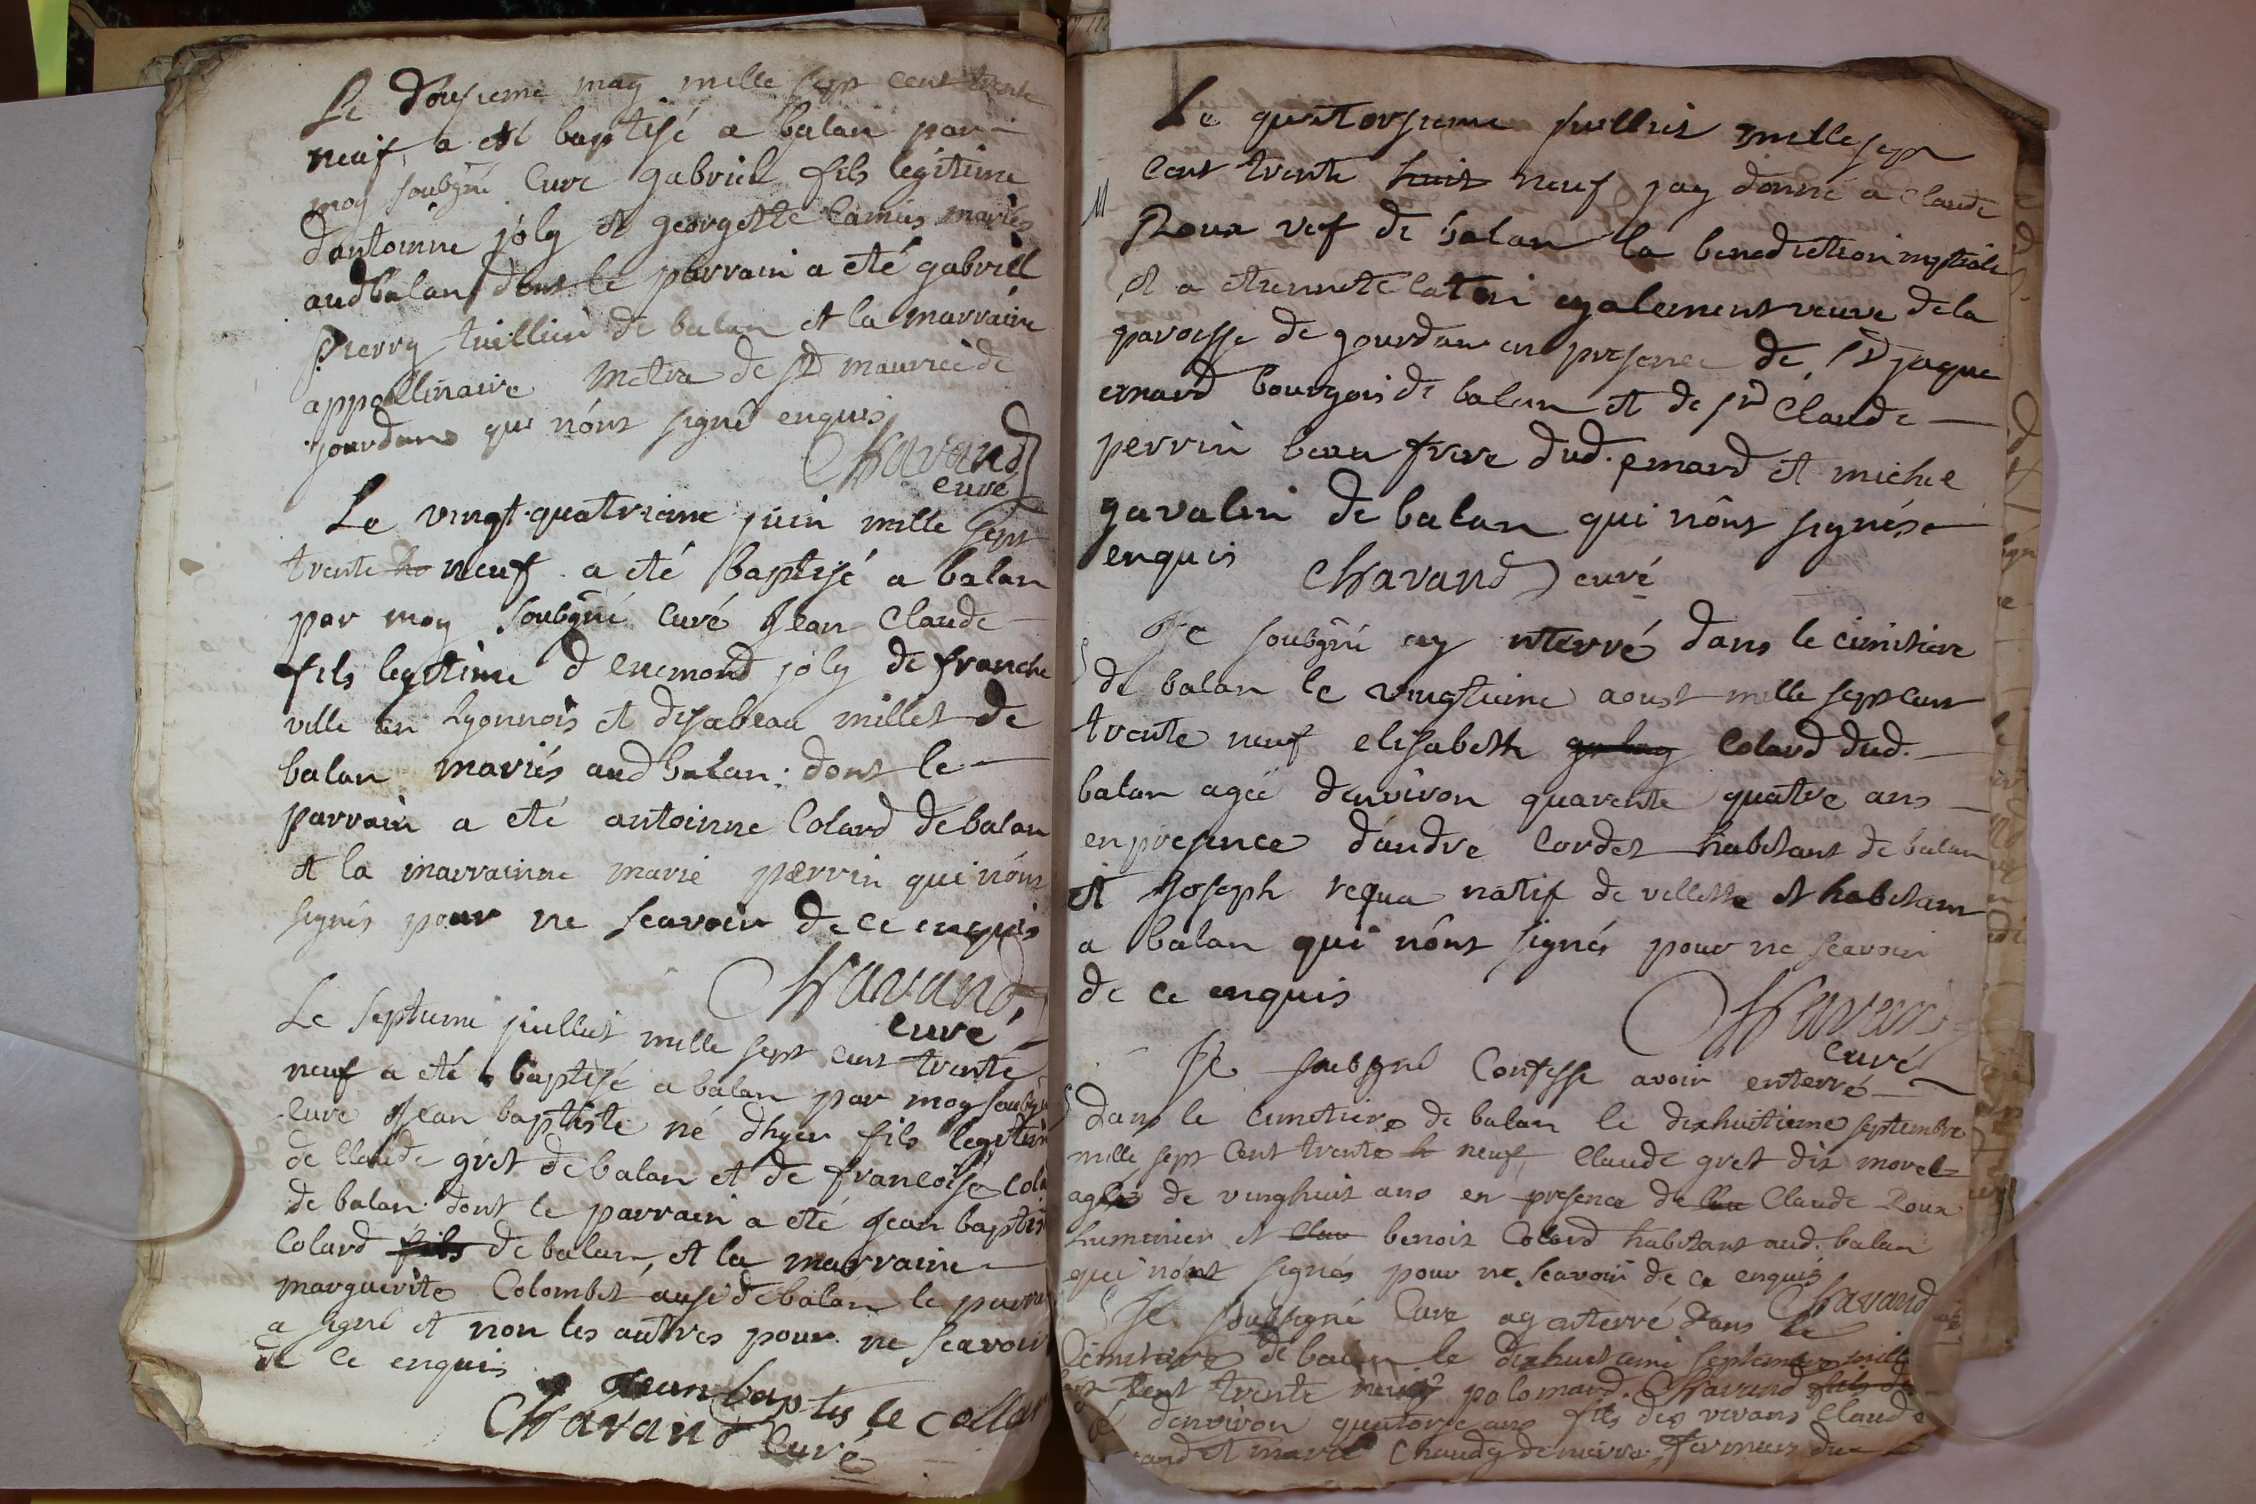 Le dousieme may mille sept cent trente
neuf, a eté baptisé a balan par
moy soubgné Curé gabriel fils legitime
d'antoinne joly et georgette Camus mariés
aud balan dont le parrain a eté gabriel
pierry tuillier de balan et la marraine
appollinaire de st maurice de
gourdans qui n'ônt signé enquis
Chavand
curé
Le vingt-quatrieme juin mille sept
trente neuf a eté baptisé a balan
par moy soubgné Curé Jean Claude
fils legitime d'enemond joly de franche
ville en Lyonnois et d'isabeau millet de
balan mariés aud balan; dont le
parrain a eté antoinne Colard de balan
et la marrainne marie perrin qui n'ônt
signés pour ne scavoir de ce enquis
Chavand,
curé
Le septieme juillet mille sept cent trente
neuf a eté baptisé a balan par moy soubgné
Curé Jean baptiste né d'hyer fils legitim
de Claude gret de balan et de francoise Cola
de balan dont le parrain a eté Jean baptis
Colard fils de balan, et la marraine
marguerite Colombet aussi de balan le parra
a signé et non les autres pour ne scavoir
de ce enquis
Jean baptiste collar
Chavand Curé
Le quatorsieme juillet mille sept
cent trente huit neuf jay donné a Claude
Roux vef de balan la benediction nuptiale
et a etiennete également veuve de la
paroisse de gourdan en presence de sr jaque
emard bourgois de balan et de sr Claude
perrin beau frere dud. emard et michel
gavalin de balan qui n'ônt signés
enquis Chavand curé
Je soubgné ay enterré dans le cimitiere
de balan le vingtieme aoust mille sept cent
trente neuf elisabeth Colard dud.
balan agée d'environ quarente quatre ans
en presence d'andré Cordet habitant de balan
et Joseph requa natif de villette et habitant
a balan qui n'ônt signés pour ne scavoir
de ce enquis
Chavand
curé
Je soubsgné Confesse avoir enterré
dans le cimetiere de balan le dixhuitieme septembre
mille sept Cent trente neuf, Claude gret dit morel
agé de vinghuit ans en presence de Claude Roux
luminier et benoit Colard habitant aud. balan
qui n'ônt signés pour ne scavoir de ce enquis
Chavand
Je soubsigné Curé ay enterré dans le
Cimitiere de balan le dixhuitieme septembre mille
sept Cent trente neuf Chavand fils de
d'environ quatorse ans fils des vivans Claude
et marie Chaudy de fermier du